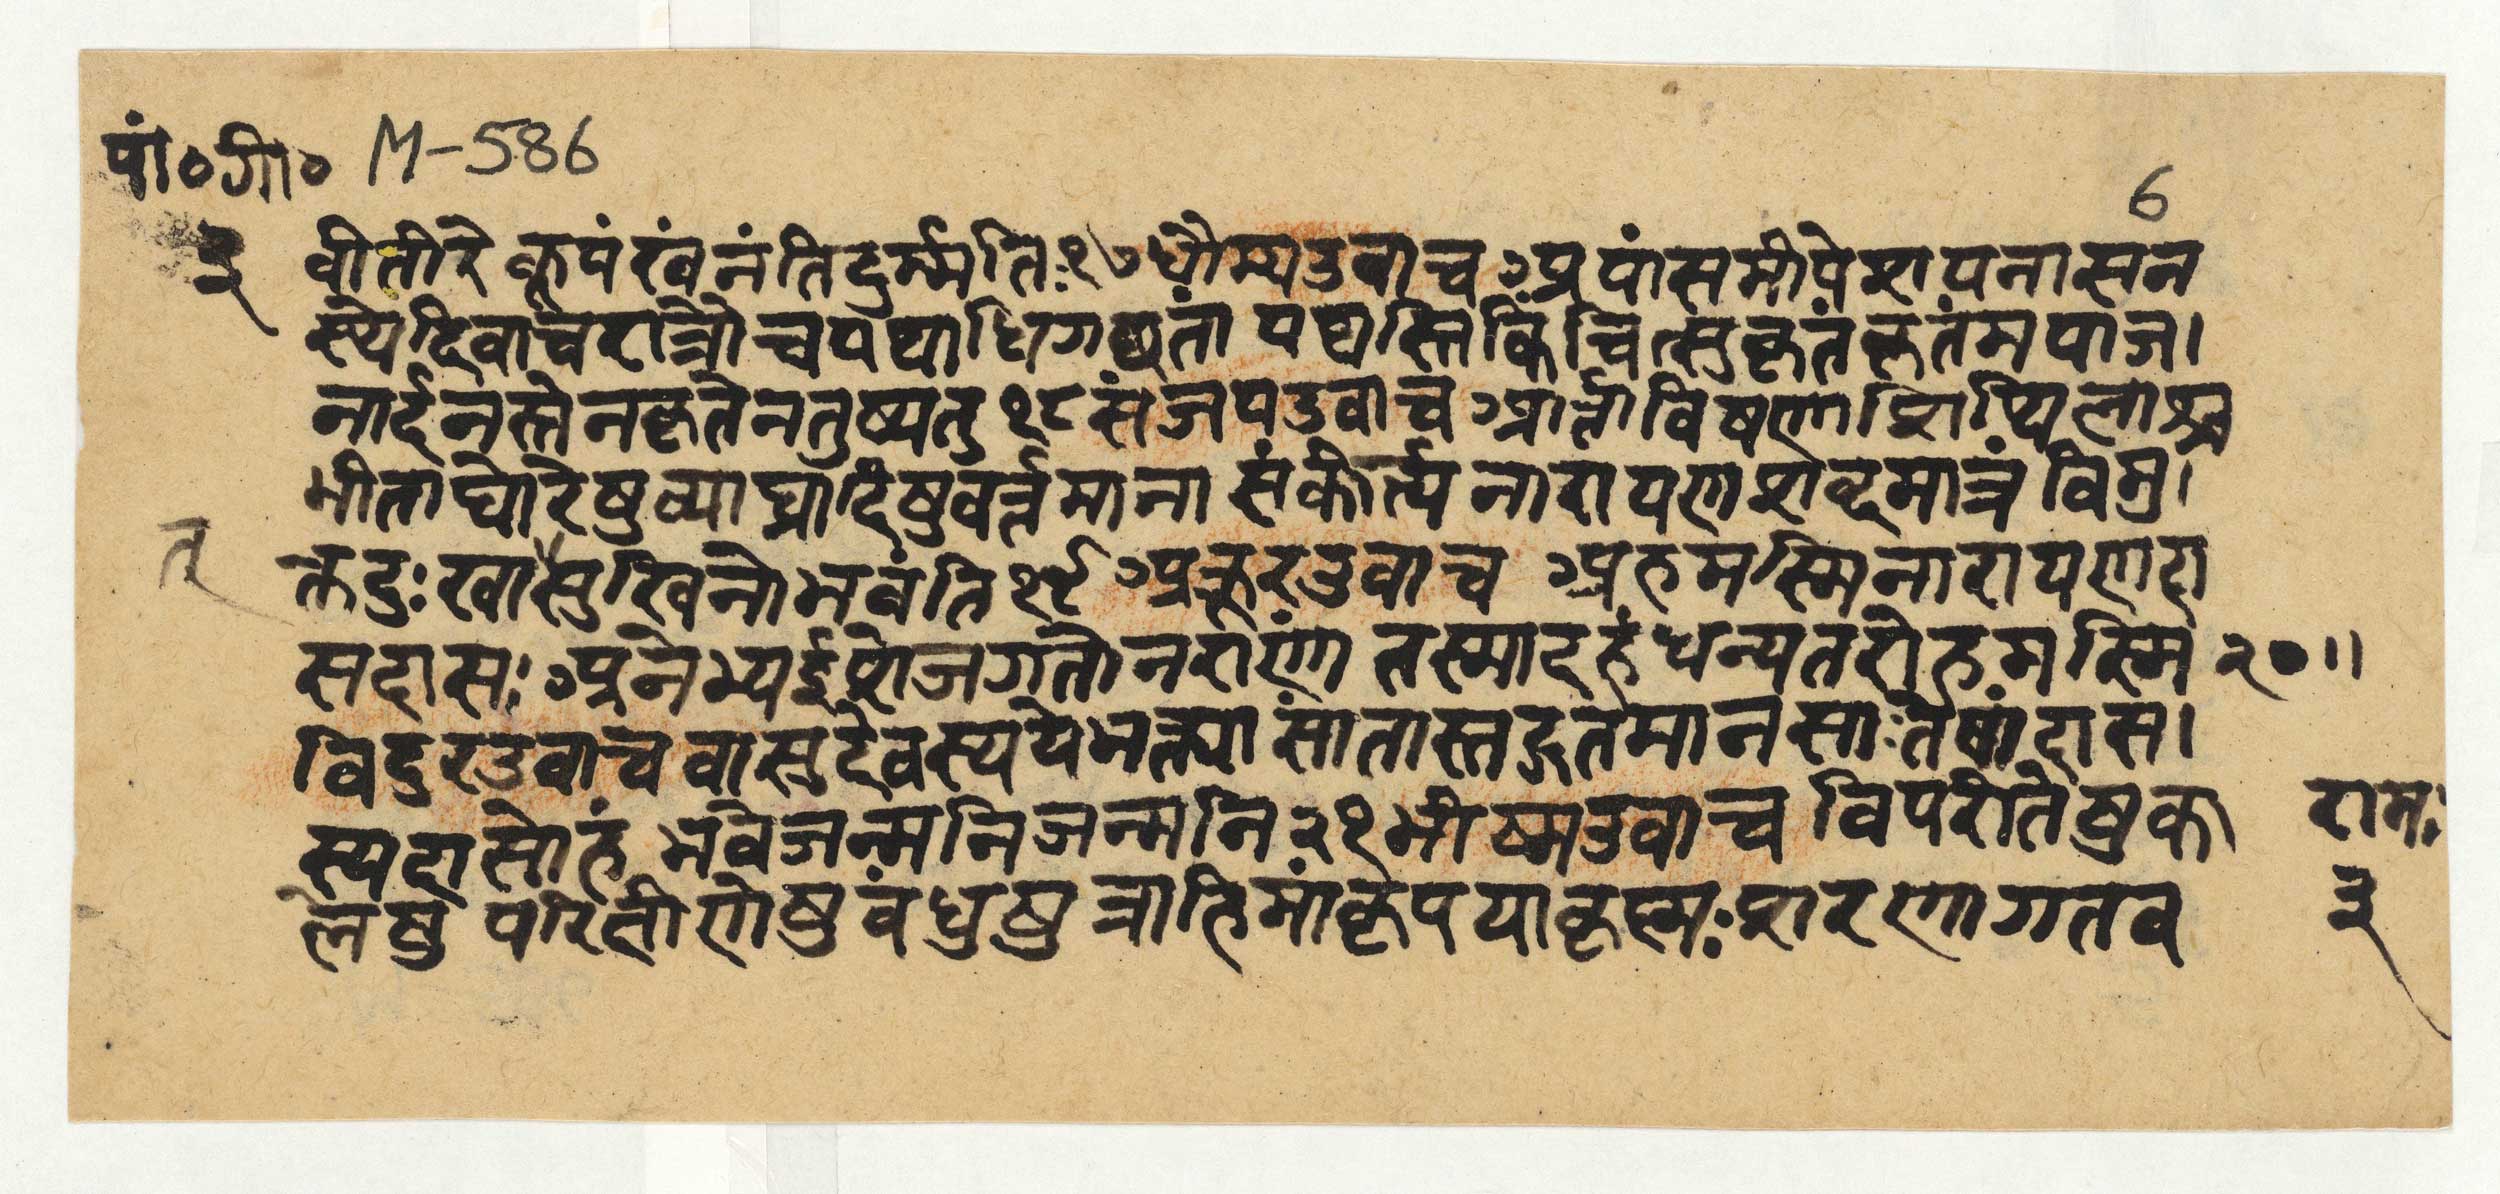 पां०गी० M-586
6
३
वीतीरे कूपं खंनंति दुर्म्मतिः१७ धौम्यउवाच अपांसमीपे शयनासन
स्ये दिवाचरात्रौ च पथाधिगछतां यद्यस्तिकिंचित्सुकृतं कृतंमयाज।
नार्दनस्तेनकृतेनतुष्यतु १८ संजयउवाच आर्ताविषणाशिथिलाश्च
भीताघोरेषुव्याघ्रादिषुवर्त्तमाना संकीर्त्य नारायणशब्दमात्रं विमु।
त्
क्तदुःखासुखिनोभवंति १९ अक्रूरउवाच अहमस्मिनारायणदा
सदासः अनेभ्यईशोजगतोनराणां तस्मादहंधन्यतरोहमस्मि २०॥
विदुरउवाच वासुदेवस्ययेभक्त्या सांतास्तद्गतमानसाः तेषांदास।
स्यदासोहं भवेजन्मनिजन्मनि २१ भीष्मउवाच विपरीतेषुका
रामः
लेषु परिक्षीणेषुबंधुषु त्राहिमांकृपयाकृष्मः शरणागतव
३